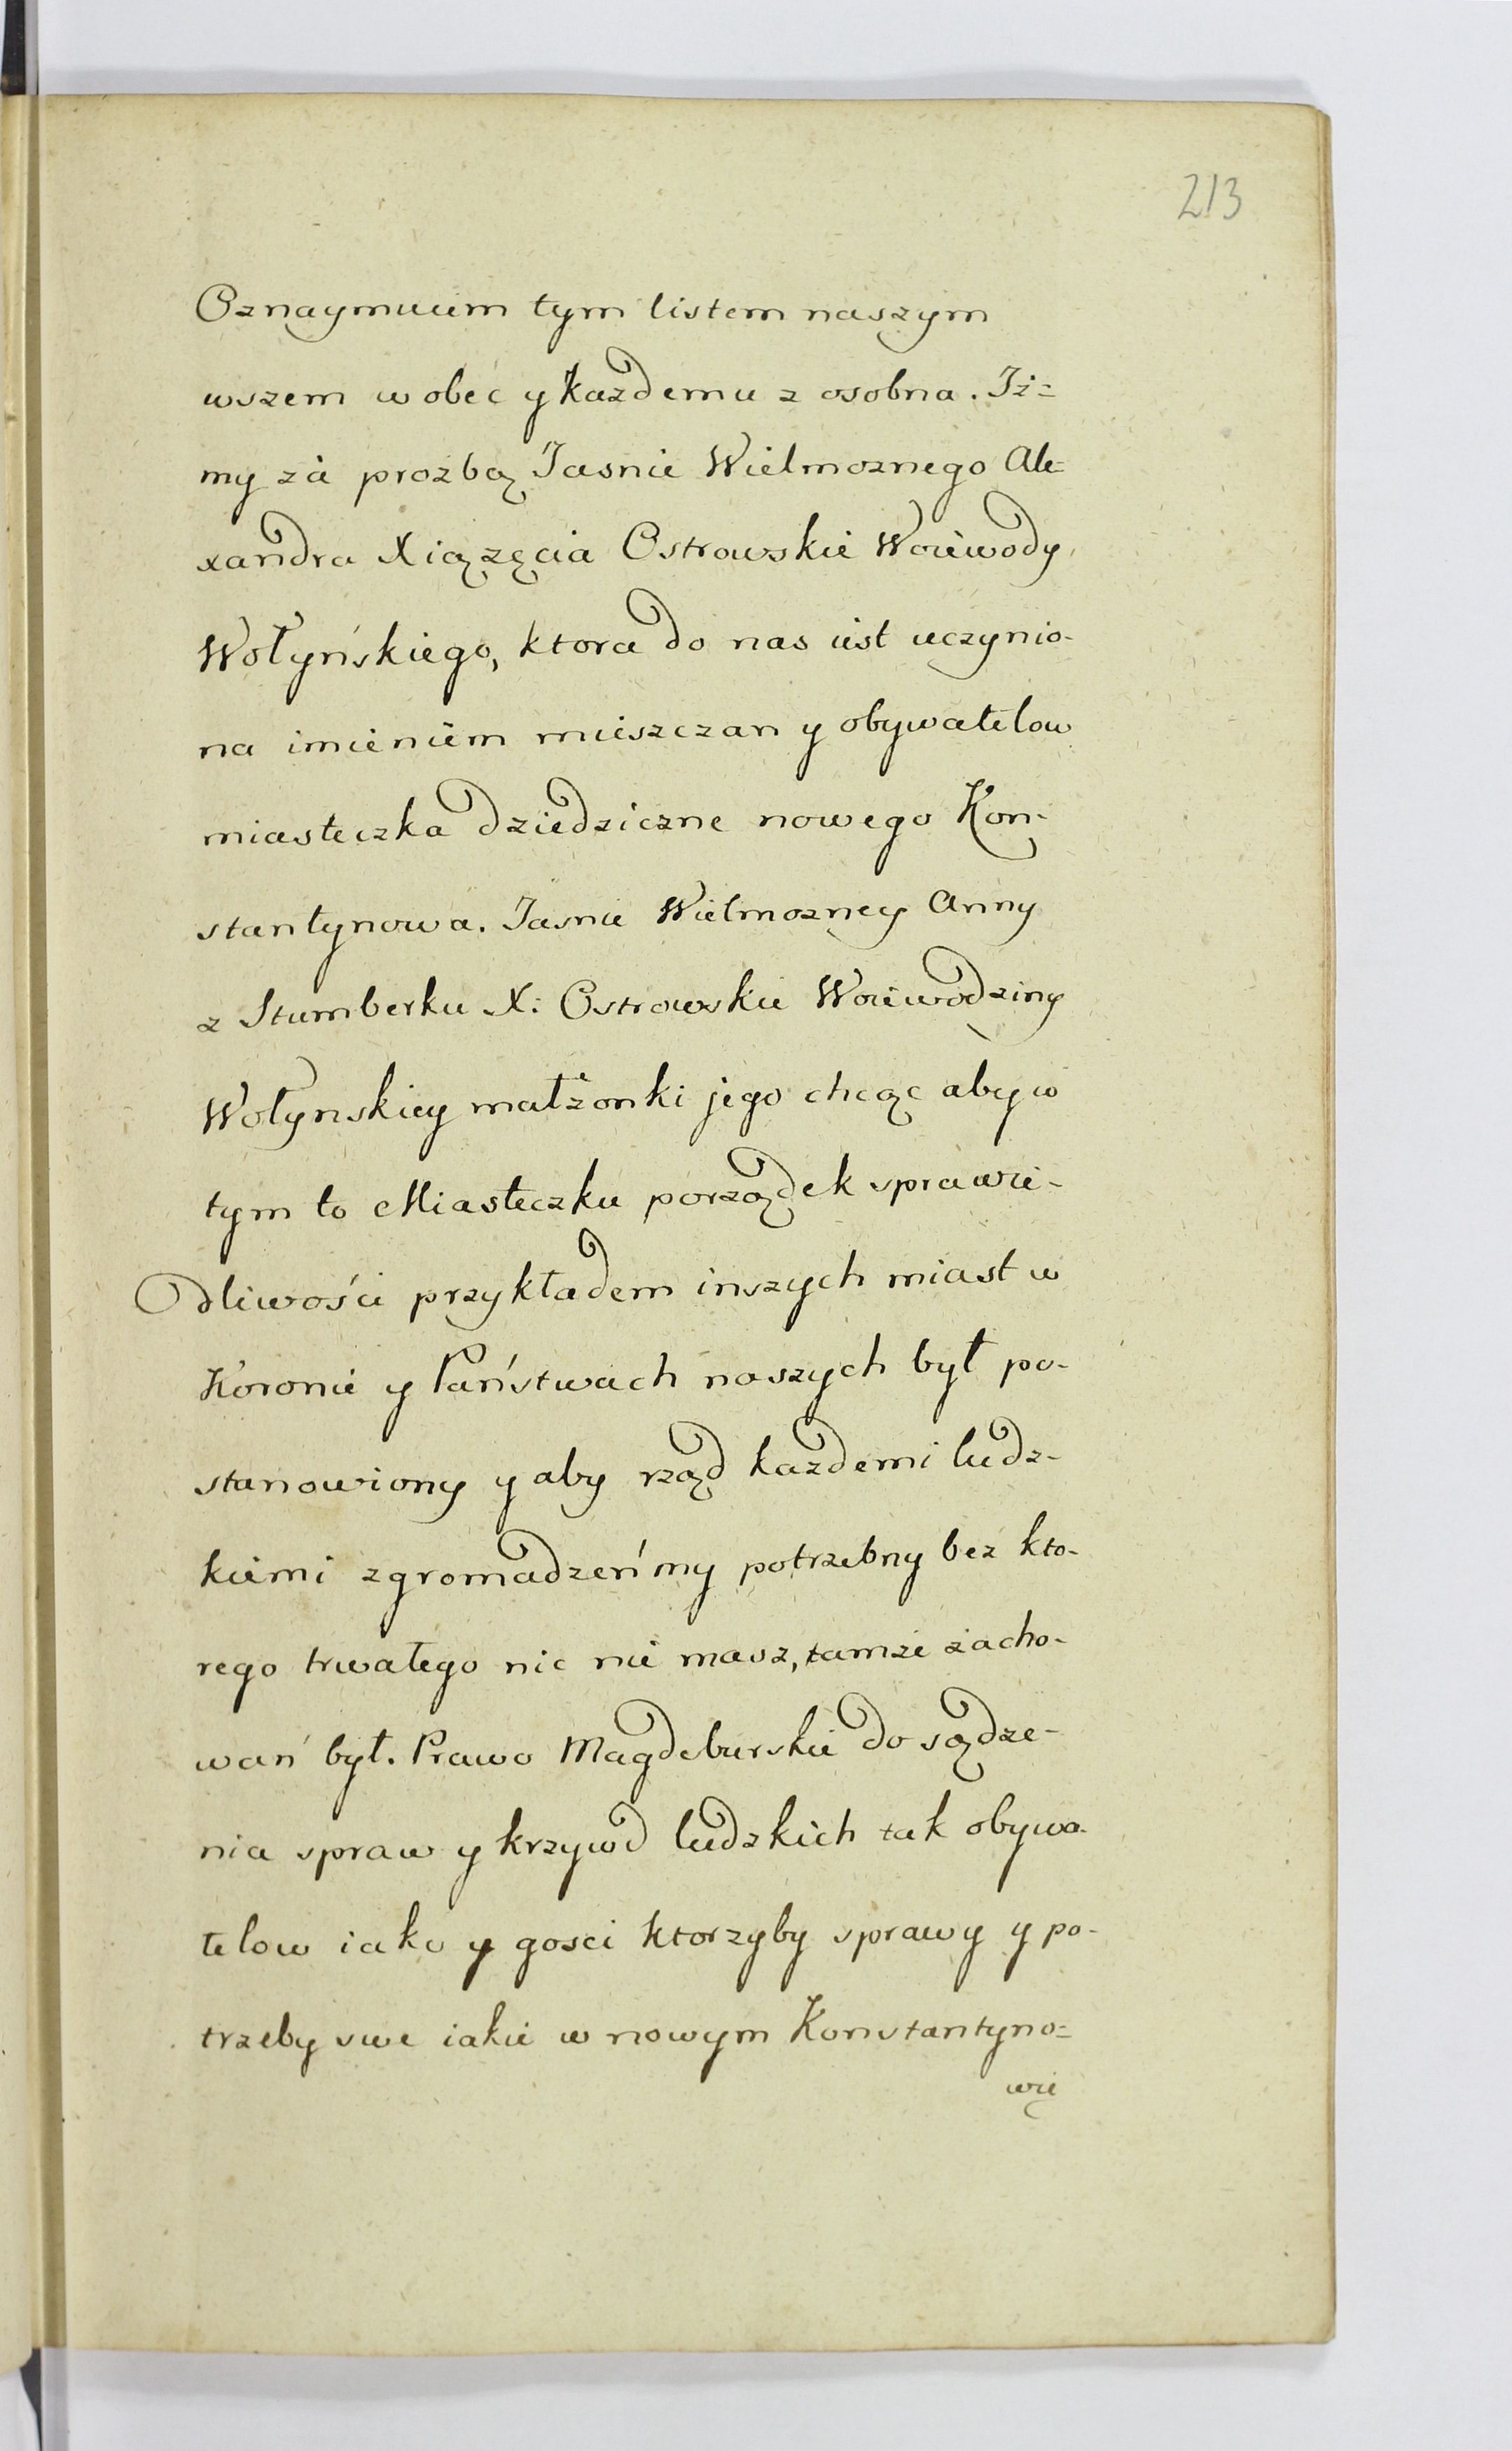 213
Oznaymuiem tym listem naszym
wszem wobec y każdemu z osobna. Iż=
my za prozbą Jasnie Wielmoznego Ale=
xandra Xiązęcia Ostrowskie Woiewody
Wołyńskiego, ktora do nas iest uczynio-
na imieniem mieszczan y obywatelow
miasteczka dziedziczne nowego Kon-
stantynowa. Jasnie Wielmozney Anny
z Stumberku X: Ostrowskie Woiewodziny
Wołynskiey małżonki jego chcąc aby w
tym to Miasteczku porządek sprawie-
dliwości przykładem inszych miast w
Koronie y Państwach naszych był po-
stanowiony y aby rząd każdemi ludz-
kiemi zgromadzeńmy potrzebny bez kto-
rego trwałego nic nie masz, tamże zacho-
wań był. Prawo Magdeburskie do sądze-
nia spraw y krzywd ludzkich tak obywa-
telow iako y gosci ktorzyby sprawy y po-
trzeby swe iakie w nowym Konstantyno=
wię